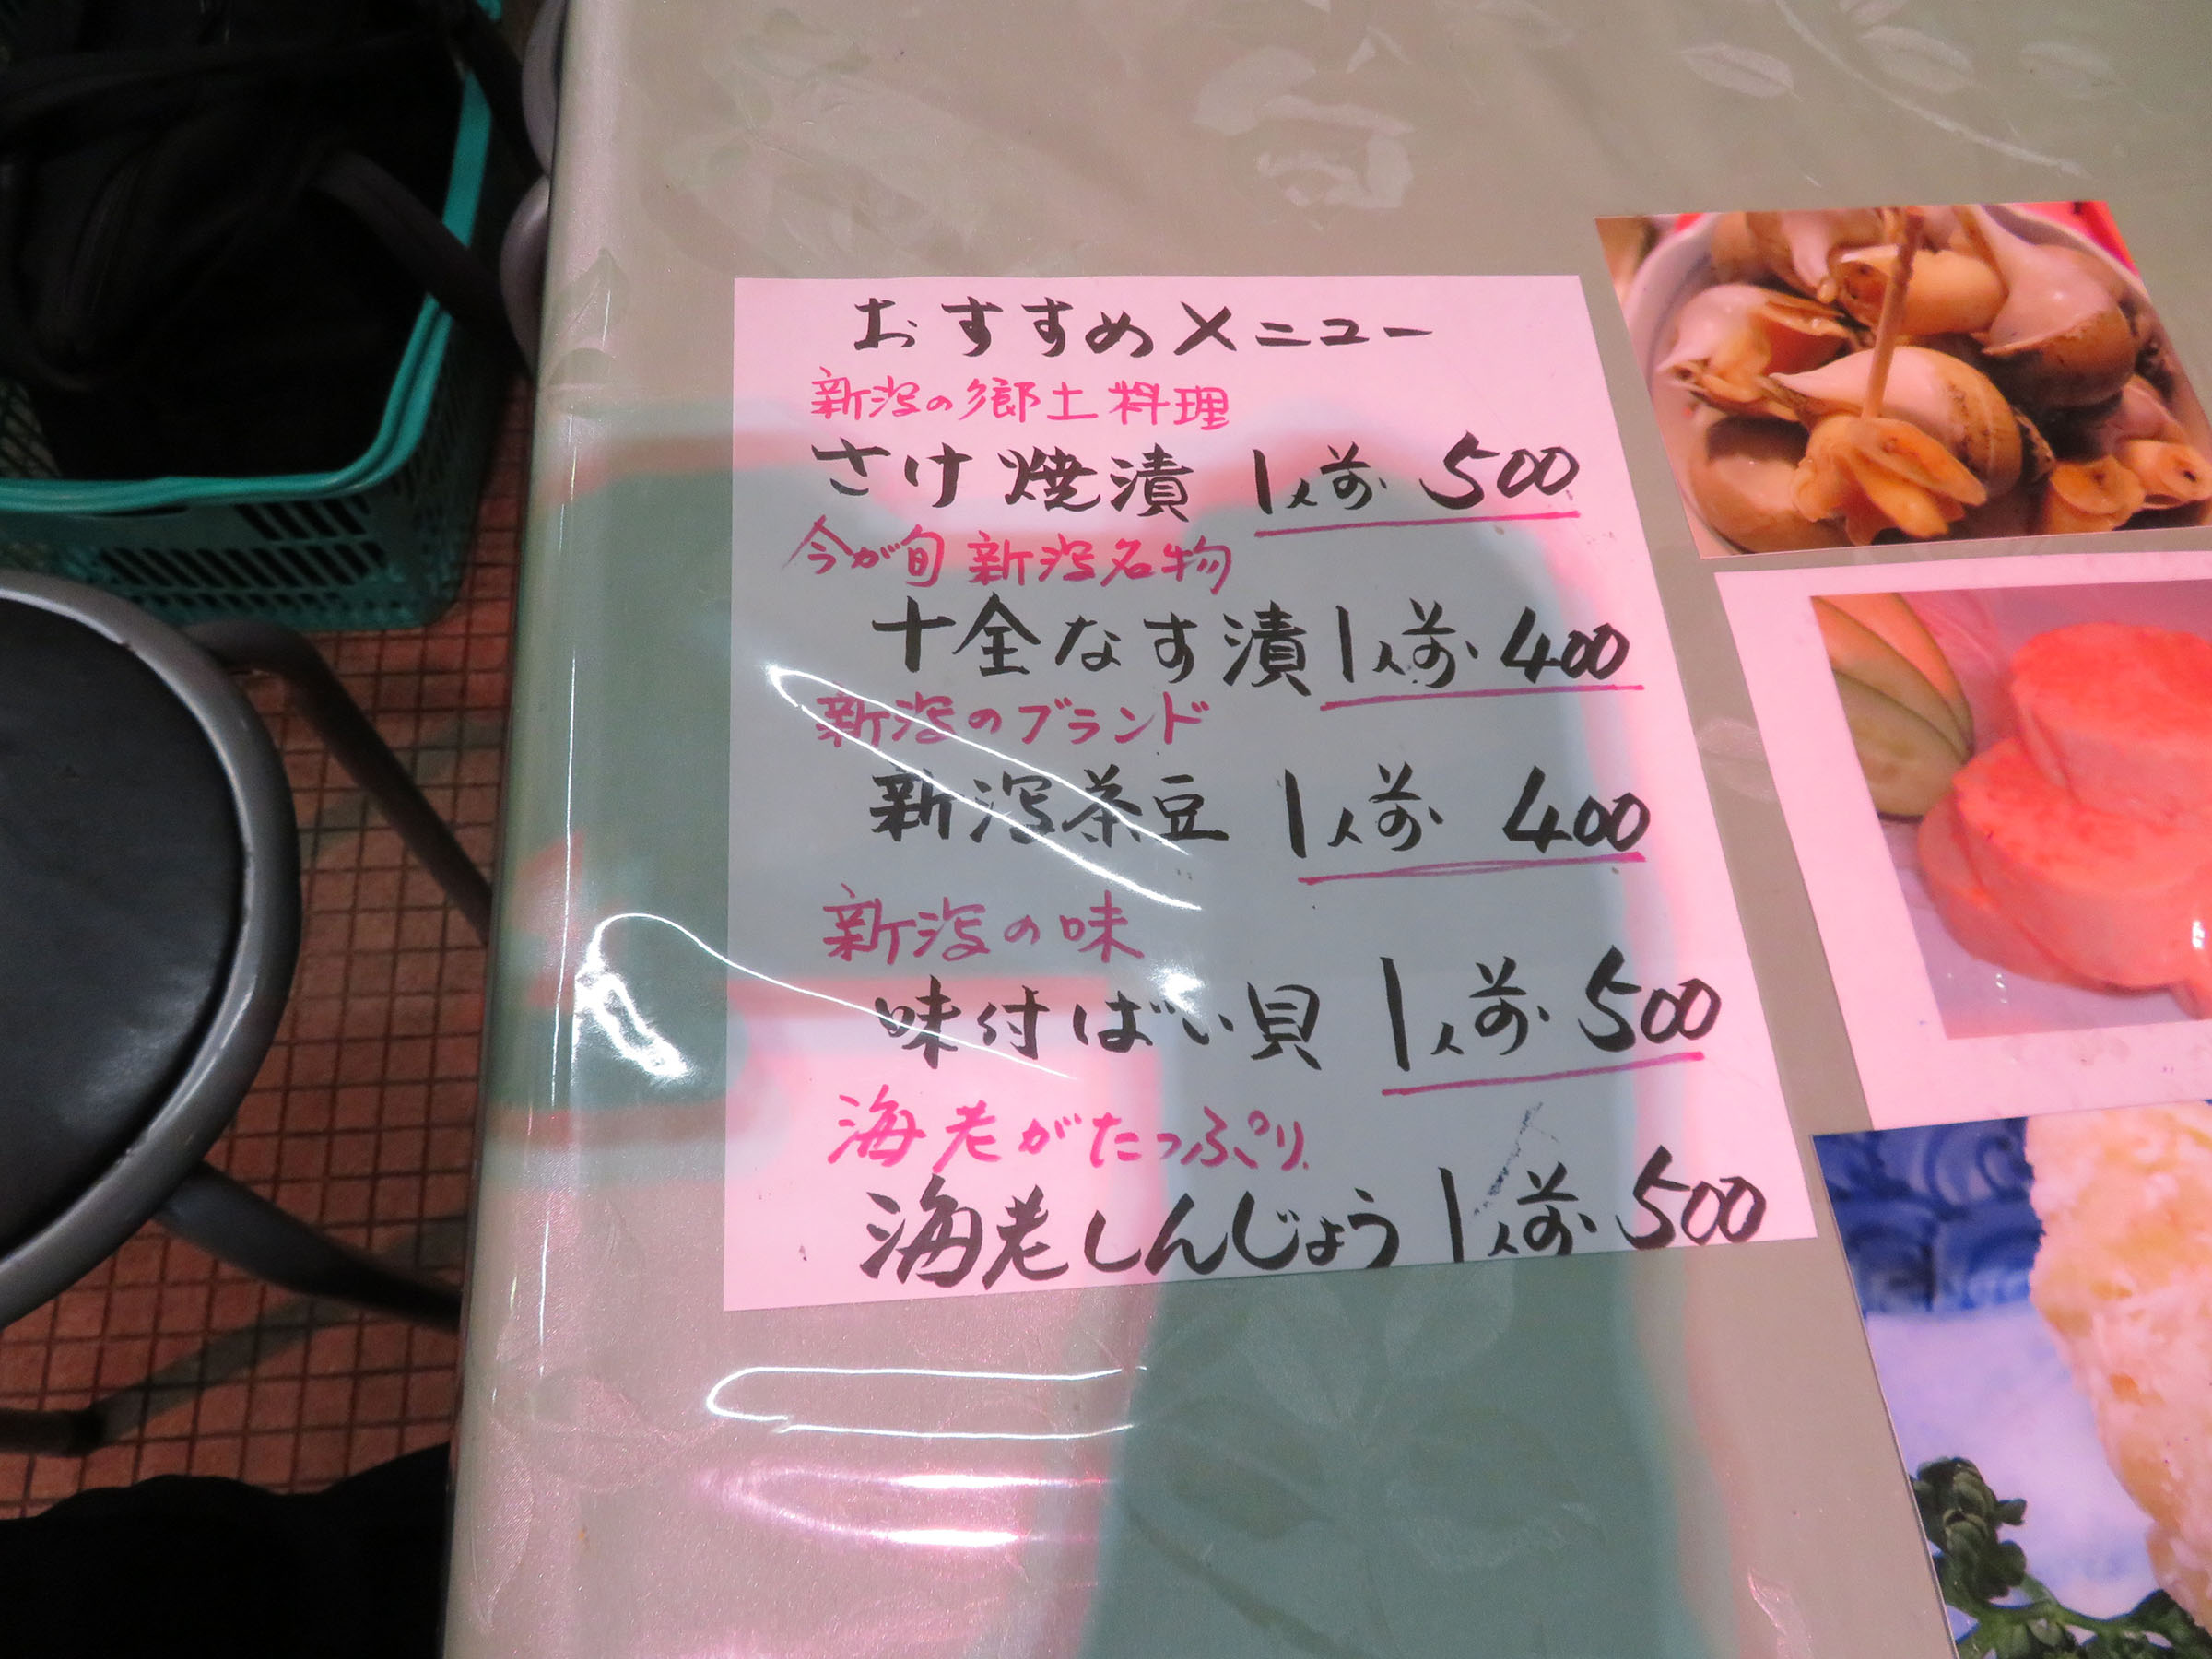 おすすめメニュー
新潟の郷土料理
さけ焼漬 1人前 500
今が旬 新潟名物
十全なす漬 1人前 400
新潟のブランド
新潟茶豆 1人前 400
新潟の味
味付ばい貝 1人前 500
海老がたっぷり
海老しんじょう 1人前 500